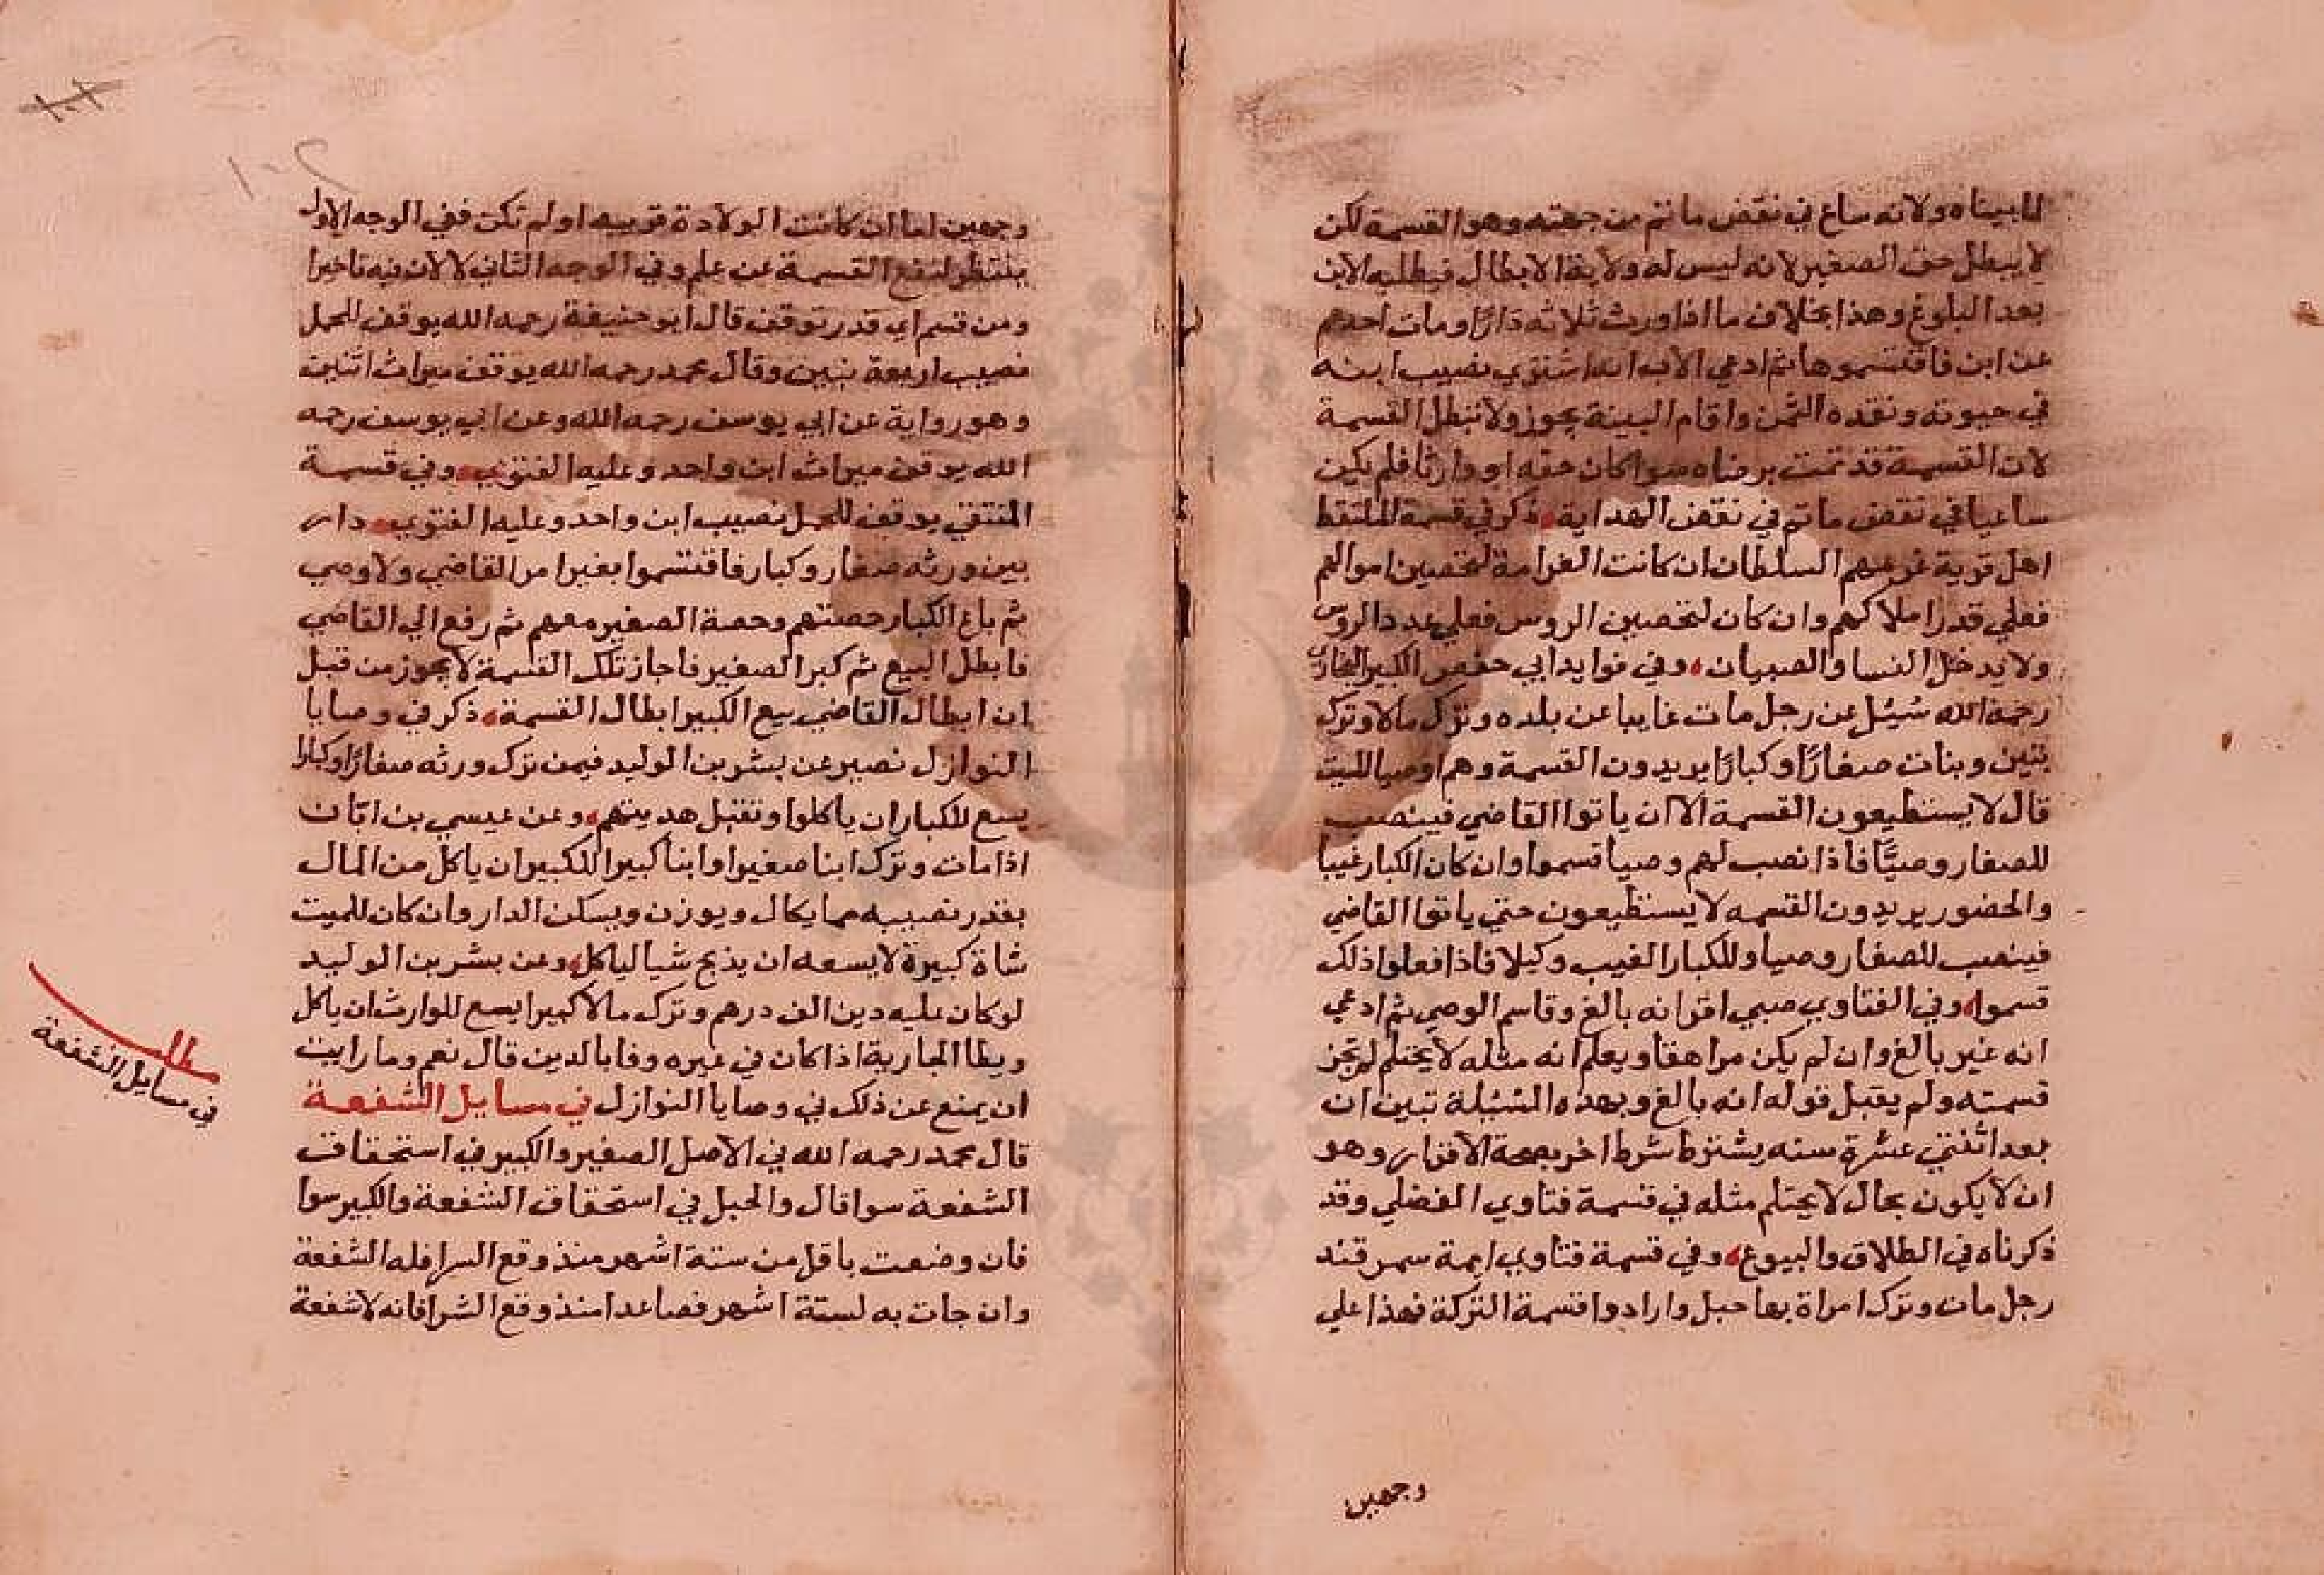 لما بيناه ولانه ساع في نقض ما تم من جهته وهو القسمة لكن
لا يبطل حق الصغير لانه ليس له ولاية الابطال فيطلبه الابن
بعد البلوغ وهذا بخلاف ما اذا ورث ثلاثه دارًا ومات احدهم
عن ابن فاقتسموها ثم ادعي الاب انه اشتري نصيب ابنه
في حيوته ونقده الثمن واقام البينة يجوز ولا تبطل القسمة
لان القسمة قد تمت برضاه سوا كان حقه او وارثا فلم يكن
ساعيا في نقض ما تم في نقض الهداية ذكر في قسمة الملتقط
اهل قرية غرمهم السلطان ان كانت الغرامة لتحصين اموالهم
فعلي قدر املاكهم وان كان لتحصين الروس فعلي عدد الروس
ولا يدخل النسا والصبيان وفي فوايد ابي حفص الكبير البخاري
رحمة الله سُئِل عن رجل مات غايبا عن بلده وترك مالا وترك
بنين وبنات صغارًا وكبارًا يريدون القسمة وهم اوصيا الميت
قال لا يستطيعون القسمة الا ان ياتوا القاضي فينصب
للصغار وصيًّا فاذا نصب لهم وصيا قسموا وان كان الكبار غيبا
والحضور يريدون القسمه لا يستطيعون حتي ياتوا القاضي
فينصب للصغار وصيا وللكبار الغيب وكيلا فاذا فعلوا ذلك
قسموا وفي الفتاوي صبي اقر انه بالغ وقاسم الوصي ثم ادعي
انه غير بالغ وان لم يكن مراهقا ويعلم ان مثله لا يحتلم لم تجز
قسمته ولم يقبل قوله انه بالغ وبهذه المسْئلة تبين ان
بعد اثنتي عشرة سنه يشترط شرط اخر بصحة الاقرار وهو
ان لا يكون بحال لا يحتلم مثله في قسمة فتاوي الفضلي وقد
ذكرناه في الطلاق والبيوع وفي قسمة فتاوي ايمة سمرقند
رجل مات وترك امراة بها حبل وارادوا قسمة التركة فهذا علي
وجهين
١٠٢
وجهين اما ان كانت الولادة قريبه او لم تكن ففي الوجه الاول
ينتظر لتقع القسمة عن علم وفي الوجه الثاني لا لان فيه تاخيرا
ومن قسم اي قدر توقف قال ابو حنيفة رحمه الله يوقف للحمل
نصيب اربعة بنين وقال محمد رحمه الله يوقف ميراث اثنين
وهو رواية عن ابي يوسف رحمه الله وعن ابي يوسف رحمه
الله يوقف ميراث ابن واحد وعليه الفتوي وفي قسمة
المنتقي يوقف للحمل نصيب ابن واحد وعليه الفتوي دار
بين ورثه صغار وكبار فاقتسموا بغير امر القاضي ولا وصي
ثم باع الكبار حصتهم وحصة الصغير معهم ثم رفع الي القاضي
فابطل البيع ثم كبر الصغير فاجاز تلك القسمة لا يجوز من قبل
ان ابطال القاضي بيع الكبير ابطال القسمة ذكر في وصايا
النوازل نصير عن بشر بن الوليد فيمن ترك ورثه صغارًا وكبارا
يسع للكبار ان ياكلوا وتقبل هديتهم وعن عيسي بن ابّان
اذا مات وترك ابنا صغيرا وابنا كبيرا للكبير ان ياكل من المال
بقدر نصيبه مما يكال ويوزن ويسكن الدار وان كان للميت
شاة كبيرة لا يسعه ان يذبح شيا لياكل وعن بشر بن الوليد
لو كان عليه دين الف درهم وترك مالا كثيرا يسع للوارث ان ياكل
ويطا الجارية اذا كان في غيره وفا بالدين قال نعم وما رايت
ان يمنع عن ذلك في وصايا النوازل في مسايل الشفعة
قال محمد رحمه الله في الاصل الصغير والكبير في استحقاق
الشفعة سوا قال والحبل في استحقاق الشفعة والكبير سوا
فان وضعت باقل من ستة اشهر منذ وقع الشرا فله الشفعة
وان جات به لستة اشهر فصاعدا منذ وقع الشرا فانه لا شفعة
مطلب
في مسايل الشفعة